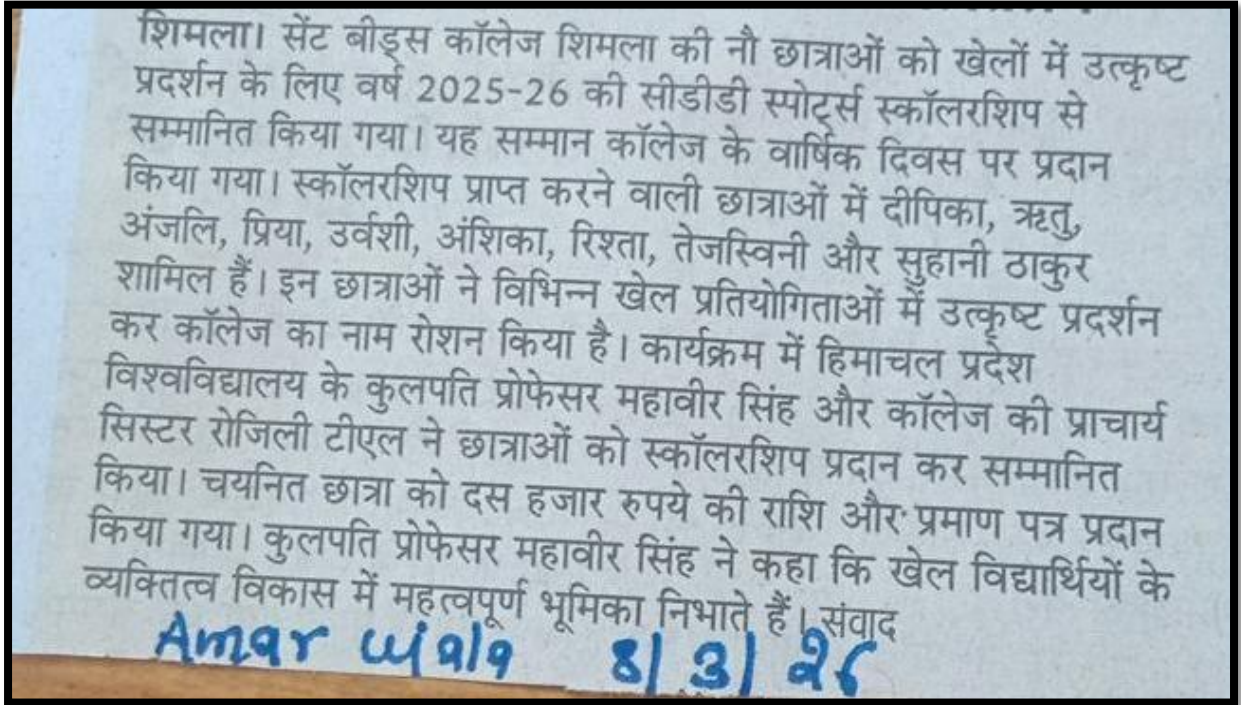 शिमला। सेंट बीड्स कॉलेज शिमला की नौ छात्राओं को खेलों में उत्कृष्ट
प्रदर्शन के लिए वर्ष 2025-26 की सीडीडी स्पोर्ट्स स्कॉलरशिप से
सम्मानित किया गया। यह सम्मान कॉलेज के वार्षिक दिवस पर प्रदान
किया गया। स्कॉलरशिप प्राप्त करने वाली छात्राओं में दीपिका, ऋतु,
अंजलि, प्रिया, उर्वशी, अंशिका, रिश्ता, तेजस्विनी और सुहानी ठाकुर
शामिल हैं। इन छात्राओं ने विभिन्न खेल प्रतियोगिताओं में उत्कृष्ट प्रदर्शन
कर कॉलेज का नाम रोशन किया है। कार्यक्रम में हिमाचल प्रदेश
विश्वविद्यालय के कुलपति प्रोफेसर महावीर सिंह और कॉलेज की प्राचार्य
सिस्टर रोजिली टीएल ने छात्राओं को स्कॉलरशिप प्रदान कर सम्मानित
किया। चयनित छात्रा को दस हजार रुपये की राशि और प्रमाण पत्र प्रदान
किया गया। कुलपति प्रोफेसर महावीर सिंह ने कहा कि खेल विद्यार्थियों के
व्यक्तित्व विकास में महत्वपूर्ण भूमिका निभाते हैं। संवाद
Amar ujala 8/3/26